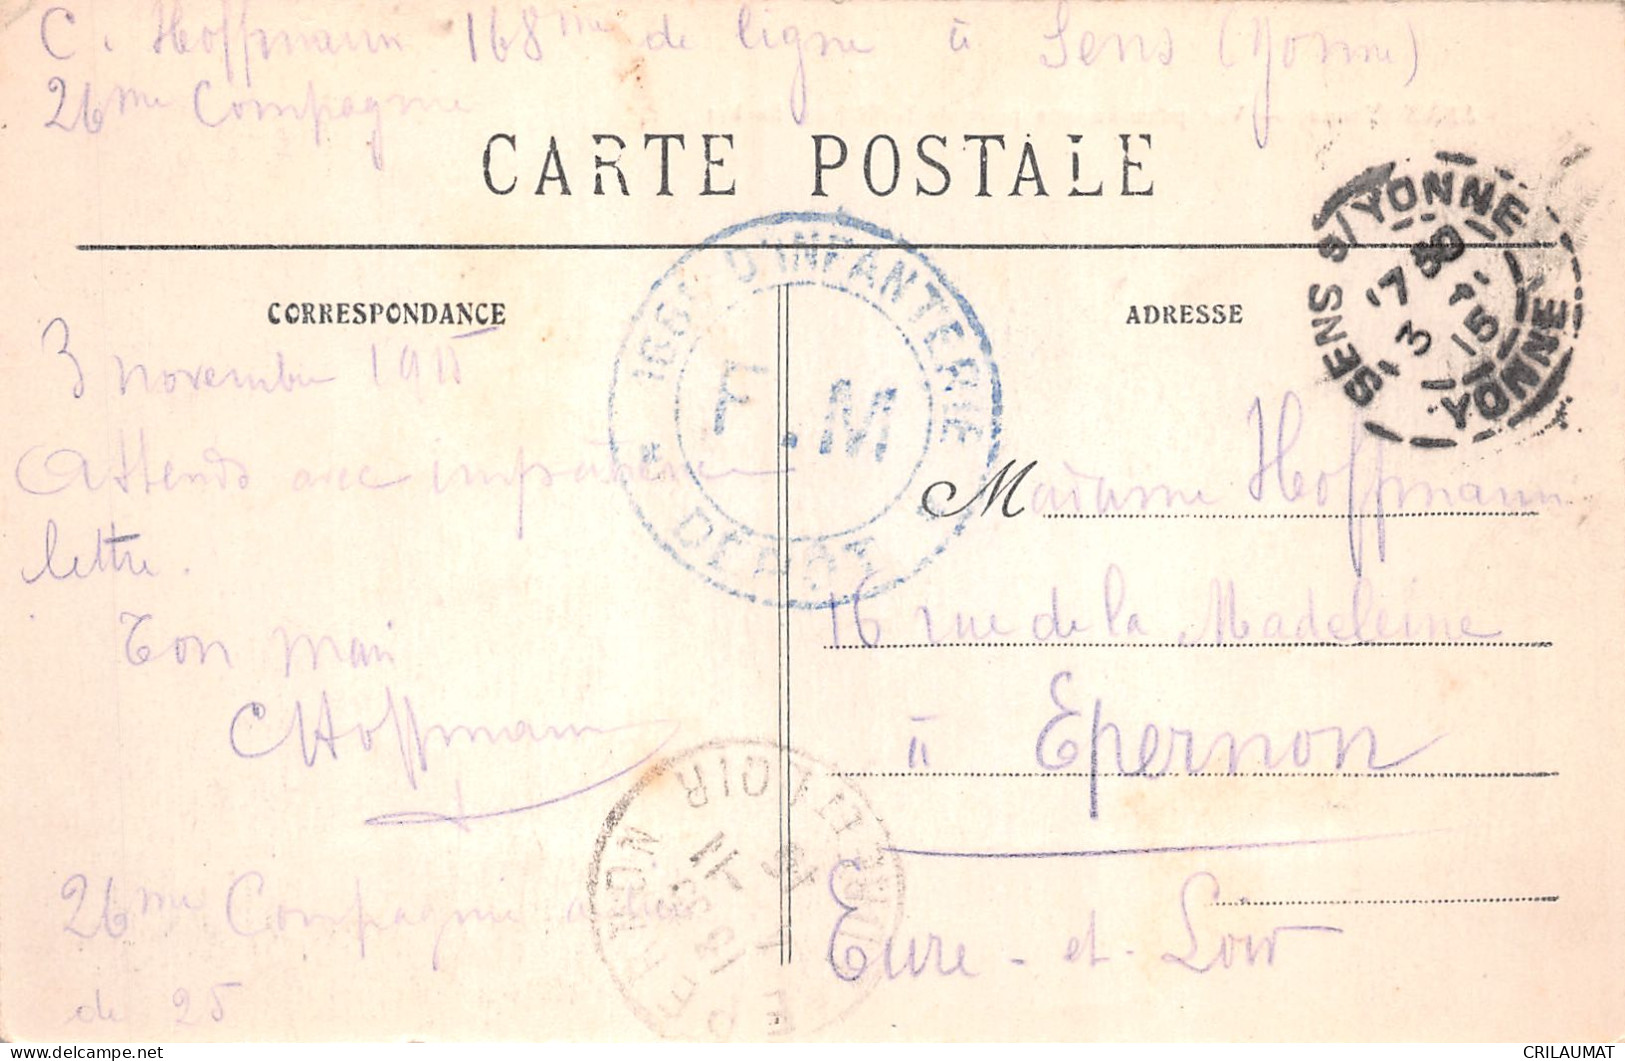 C. Hoffmann 168me de ligne à Sens (Yonne)
26me Compagnie
CARTE POSTALE
SENS S/YONNE
YONNE
17 30
3 11
15
168E D'INFANTERIE
F.M
* DÉPÔT *
CORRESPONDANCE
ADRESSE
3 novembre 1915
Attends avec impatience
lettre.
Ton mari
CHoffmann
26me Compagnie au lieu
de 25
M
Madame Hoffmann
16 rue de la Madeleine
à Epernon
Eure-et-Loir
EPERNON
EURE-ET-LOIR
CRILAUMAT